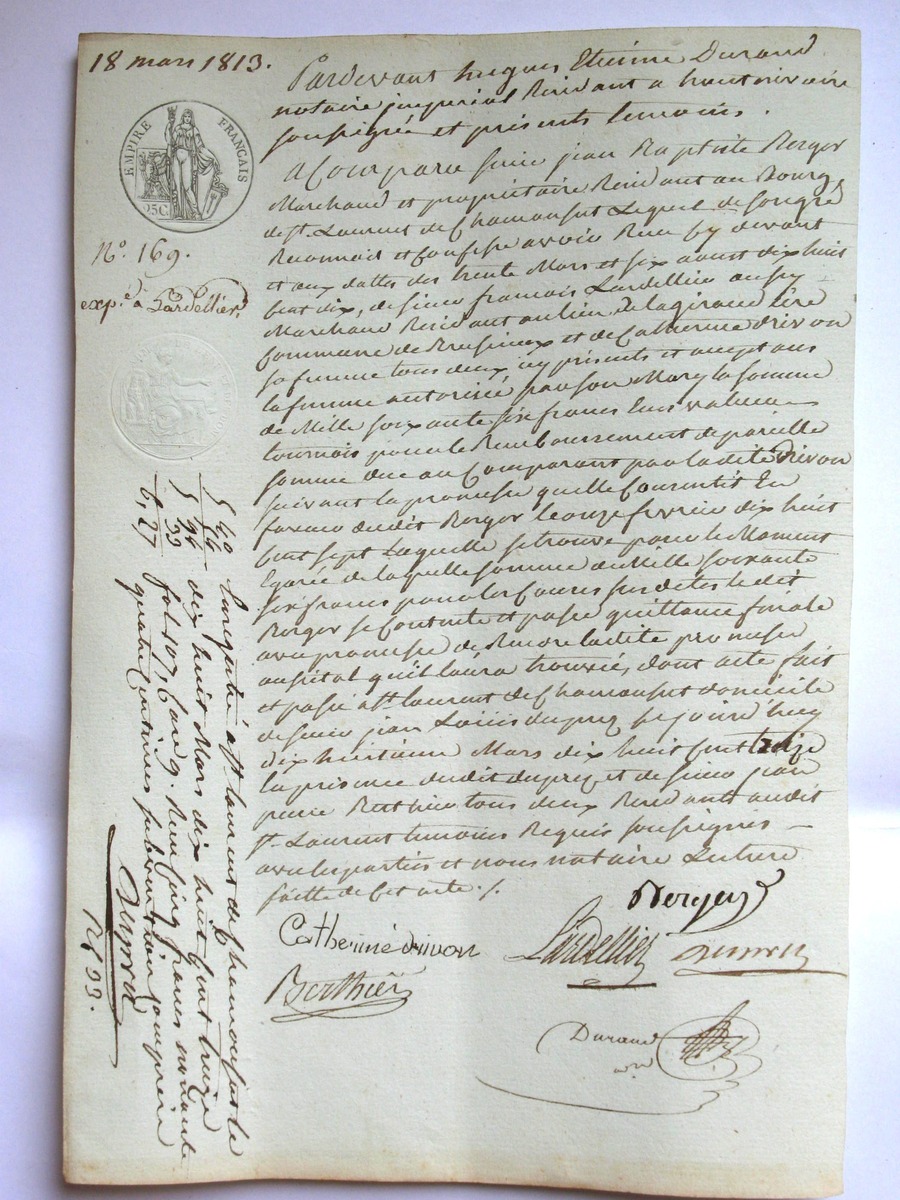 18 mars 1813.
EMPIRE FRANÇAIS
25C.
N.o 169.
exp.é à Lardellier
Pardevant huques Etienne Durand
notaire imperial Residant a hauterivoire
soussigné et présents temoins.
A Comparu sieur jean Baptiste Berger
Marchand et propriétaire Residant au Bourg
de St. Laurent de Chamousset Lequel de son gré
Reconnait et Confesse avoir Reçu cy devant
et aux dattes des trente Mars et six aoust dix huit
Cent dix, de sieur francois Lardellier aussy
Marchand Residant au lieu de la giraudière
Commune de Brussieux et de Catherine drivon
sa femme tous deux icy présents et acceptans
la femme autorisée par son Mary la somme
de Mille soixante six francs Ens valeur
tournois pour le Remboursement de pareille
somme due au Comparant par la dite Drivon
suivant la promesse quelle Consentit En
faveur dudit Berger le onze fevrier dix huit
Cent sept Laquelle se trouve pour le Moment
Egarée de laquelle somme de Mille soixante
six francs pour les Causes sus dites le dit
Berger se Contente et passe quittance finale
avec promesse de Rendre ladite promesse
aussitot qu'il l'aura trouvée, dont acte fait
et passé a St laurent de Chamousset domicile
de sieur jean Louis dupuy ce jourd'huy
dix huitieme Mars dix huit Cent treize
En présence dudit dupuy et de sieur jean
pierre Berthier tous deux Residants audit
St. Laurent temoins Requis soussignés
avec les parties et nous notaire Lecture
faitte de Cet acte ./.
Berger
Catherine drivon
Lardellier
Berthier
Durand
n.re
Enregistré a St laurent de Chamousset le
dix huit Mars dix huit Cent treize
fol. 107, C. Reçu Cinq francs soixante
quatre Centimes subvention Comprise
5 40
5 94
33
6, 27